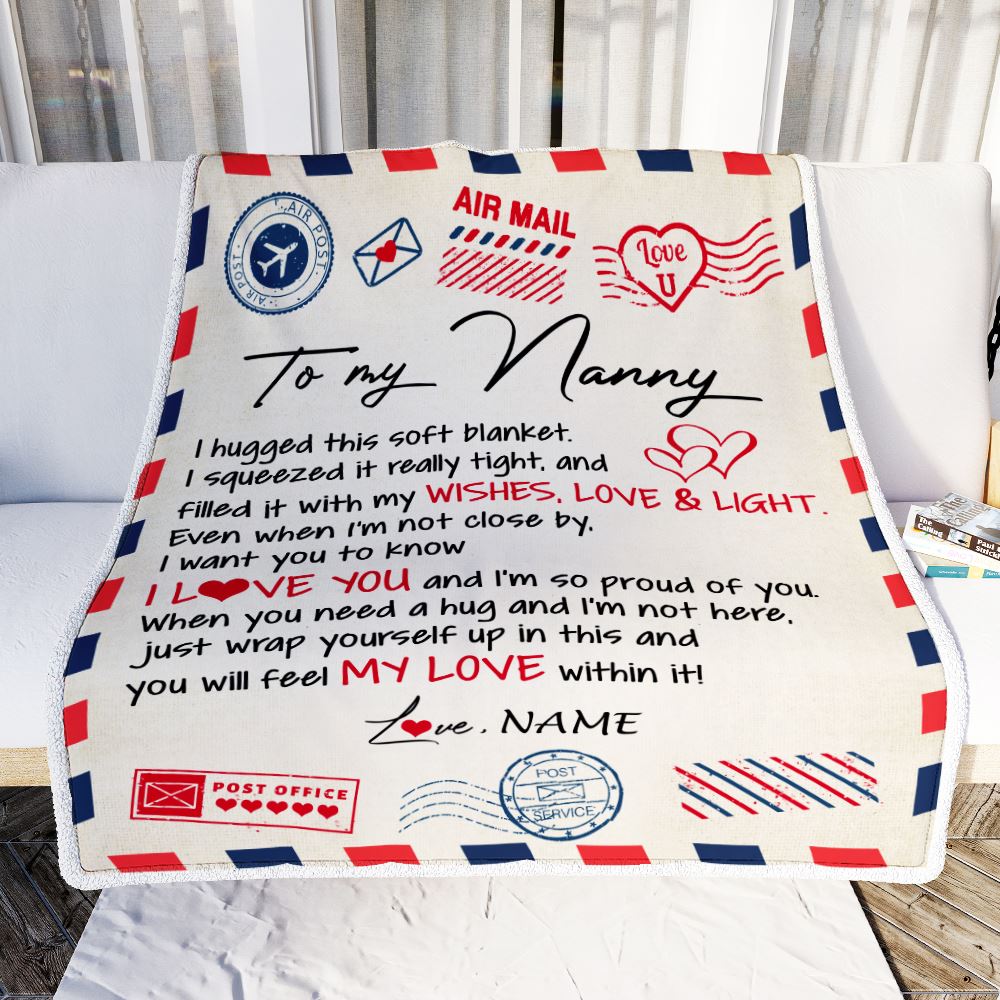 AIR POST
AIR POST
AIR MAIL
Love
U
To my Nanny
I hugged this soft blanket.
I squeezed it really tight, and
filled it with my WISHES, LOVE & LIGHT.
Even when I'm not close by,
I want you to know
I L❤VE YOU and I'm so proud of you.
When you need a hug and I'm not here,
just wrap yourself up in this and
you will feel MY LOVE within it!
L❤ve, NAME
POST OFFICE
POST
SERVICE
The
Calling
Paul